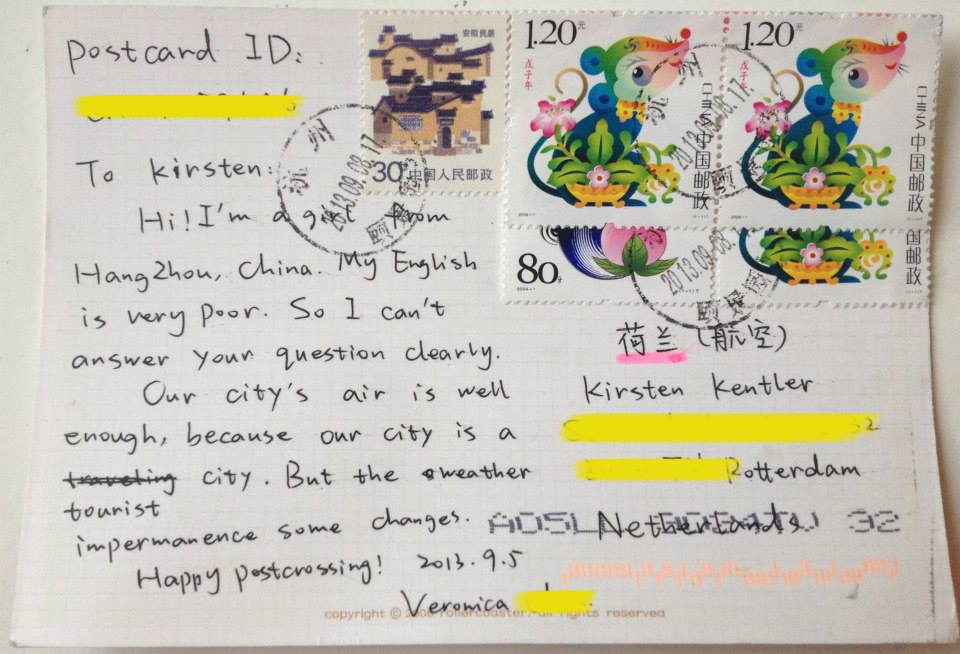 Postcard ID:
To Kirsten:
Hi! I'm a girl from
HangZhou, China. My English
is very poor. So I can't
answer your question clearly.
Our city's air is well
enough, because our city is a
traveling city. But the weather
tourist
impermanence some changes.
Happy postcrossing! 2013.9.5
Veronica
安徽民居
30分 中国人民邮政
1.20元
戊子年
CHINA 中国邮政
1.20元
戊子年
CHINA 中国邮政
80分
国邮政
杭州
2013.09.08.17
2013.09.08.17
2013.09.08.
荷兰 (航空)
Kirsten Kentler
Rotterdam
Netherlands
32
copyright © rollercoaster. all rights reserved